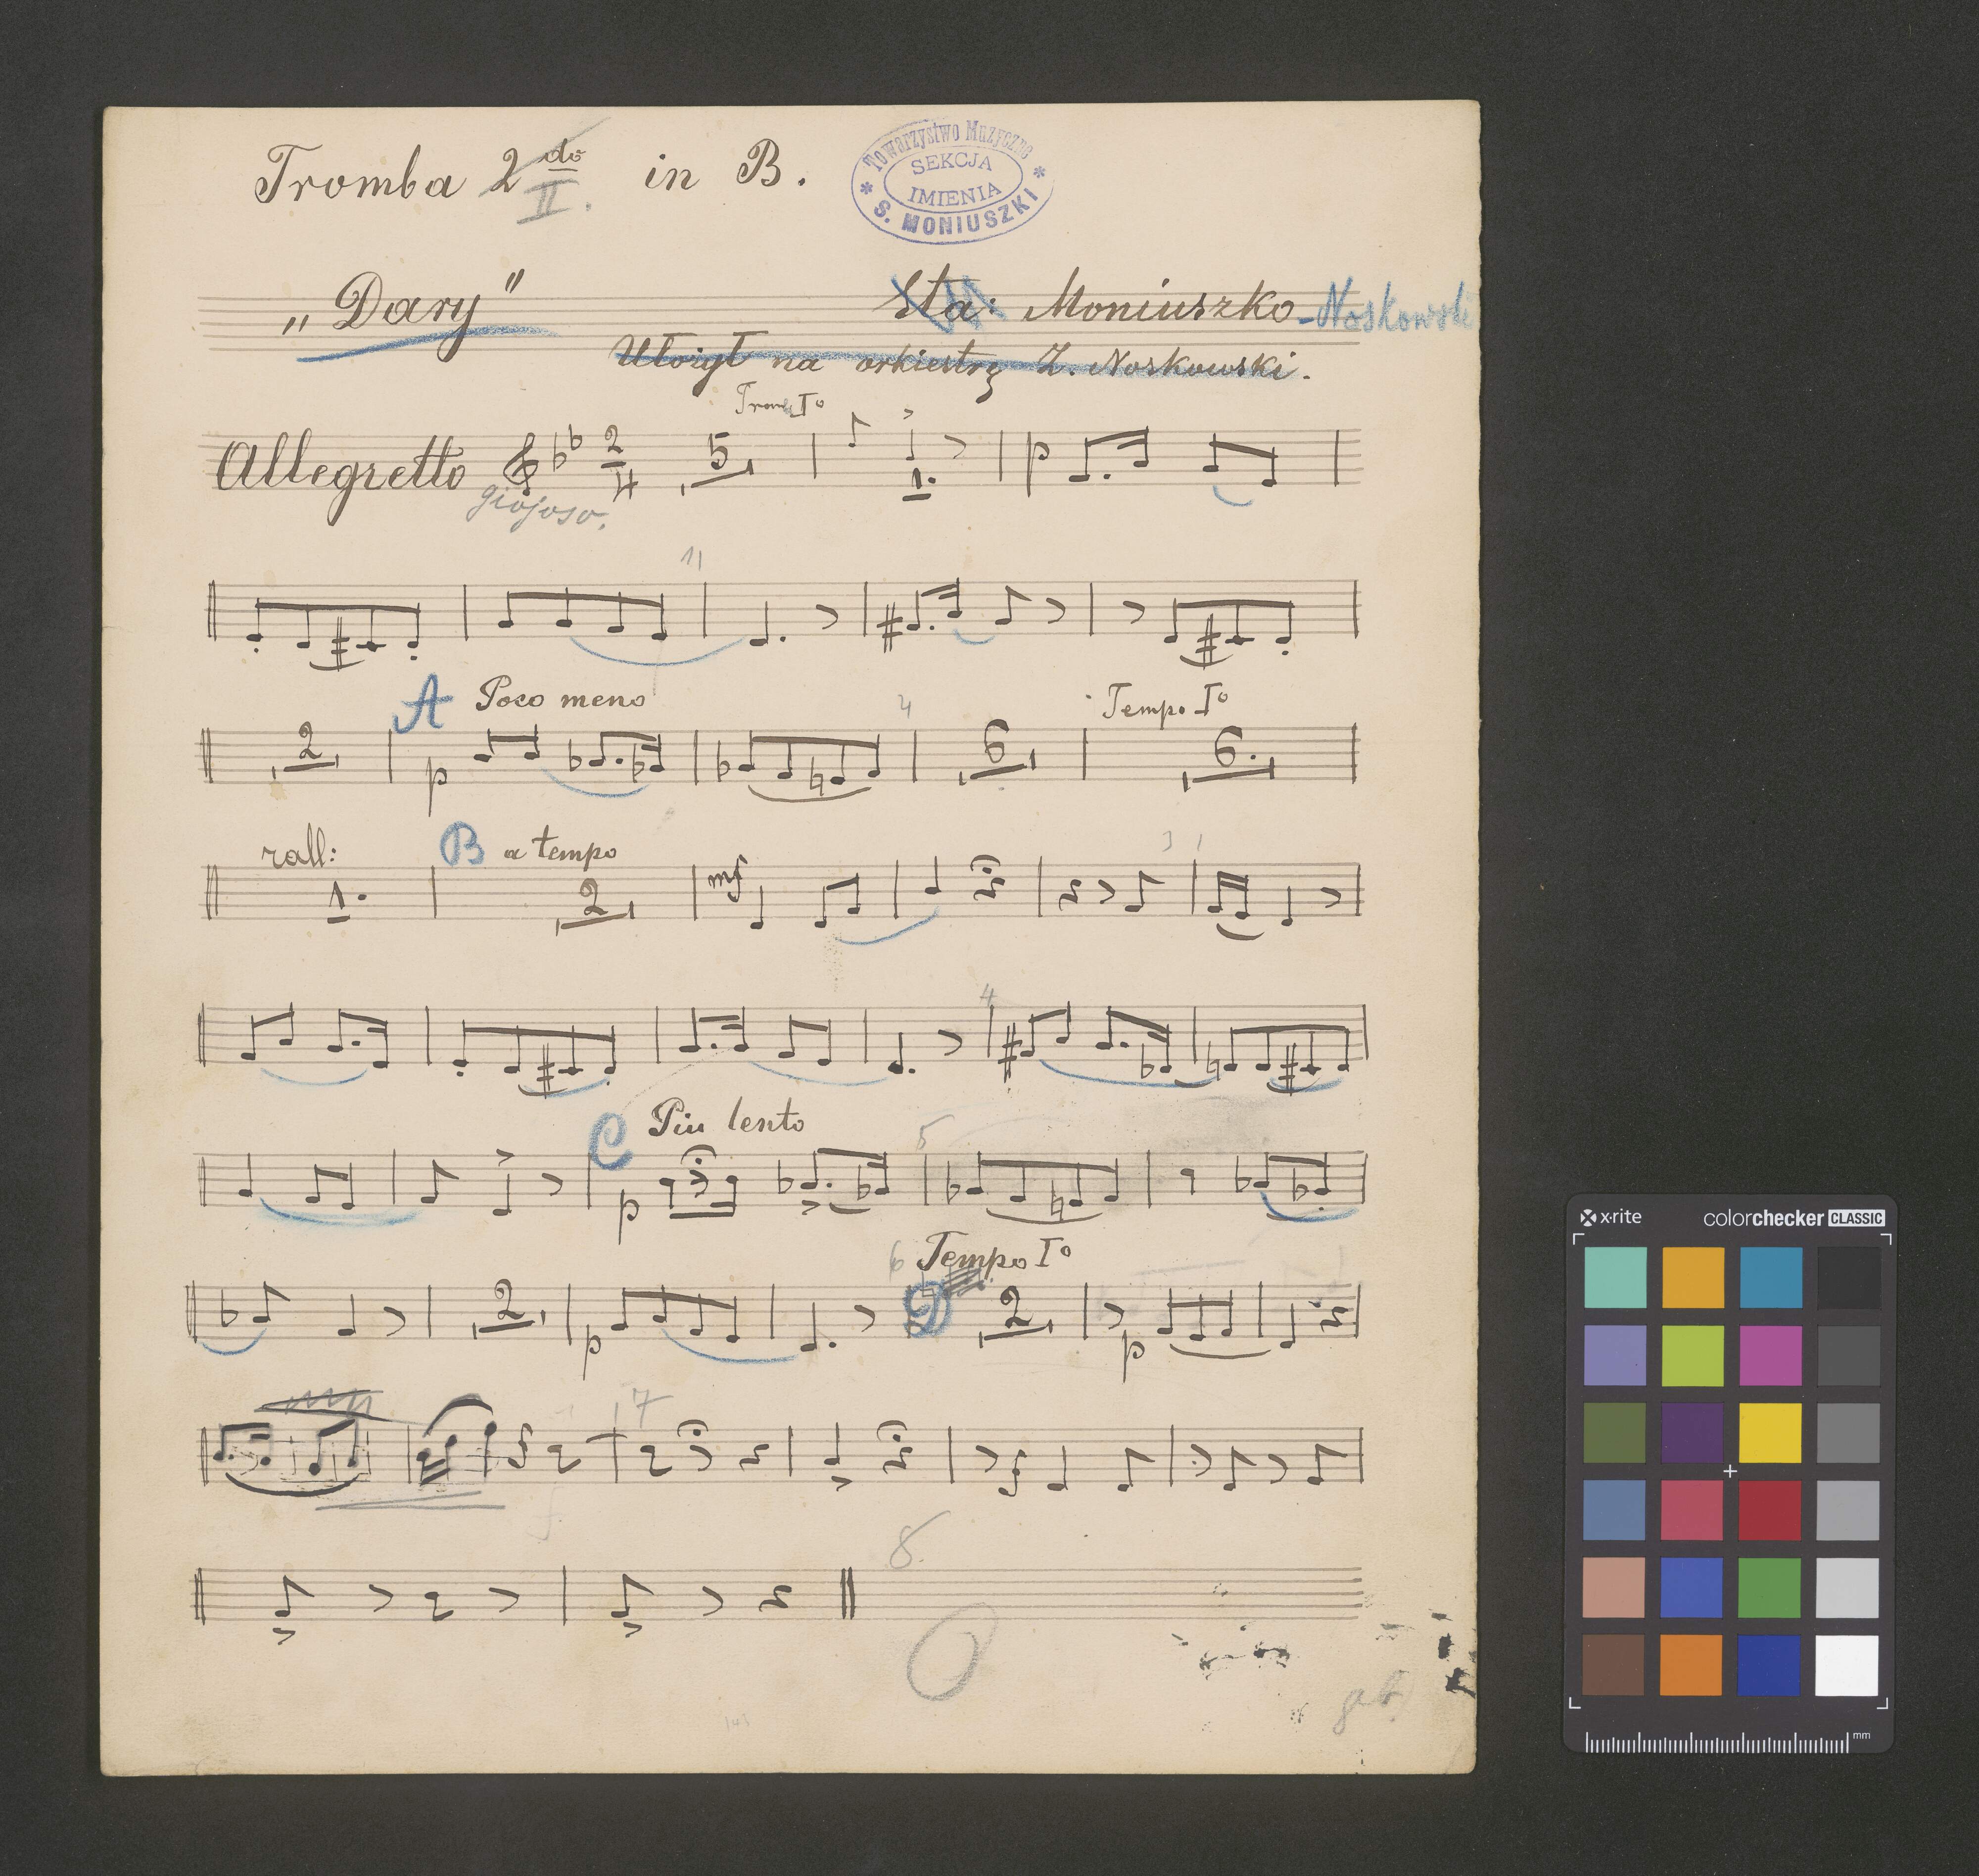 Tromba 2 do in B.
II.
Towarzystwo Muzyczne
SEKCJA
IMIENIA
S. MONIUSZKI
„Dary" Sta: Moniuszko - Noskowski
Ułożył na orkiestrę Z. Noskowski.
Tromb Iº
Allegretto 2 4 5 1. p
giojoso.
11
A Poco meno 4 Tempo Iº
2 p 6 6.
rall: B a tempo 3 1
1. 2 mf
4
C Piu lento 5
p
6 Tempo Iº
2 p D 2 p
7
f f
8.